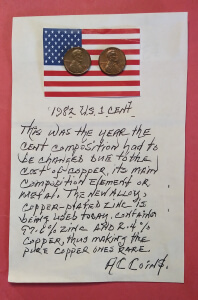 1982 U.S. 1 CENT
THIS WAS THE YEAR THE
CENT COMPOSITION HAD TO
BE CHANGED DUE TO THE
COST OF COPPER, ITS MAIN
COMPOSITION ELEMENT OR
METAL. THE NEW ALLOY,
COPPER-PLATED ZINC IS
BEING USED TODAY. CONTAINS
97.6% ZINC AND 2.4%
COPPER, THUS MAKING THE
PURE COPPER ONES RARE.